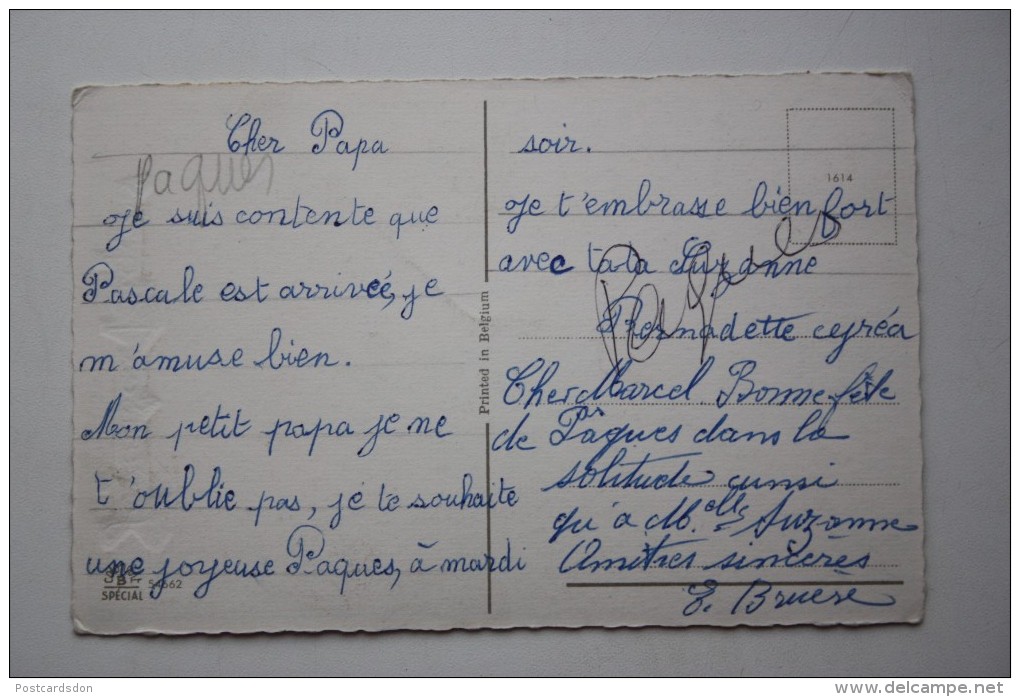 Cher Papa
Paques
Je suis contente que
Pascale est arrivée, je
m'amuse bien.
Mon petit papa je ne
t'oublie pas, je te souhaite
une joyeuse Paques, à mardi
54662
SPÉCIAL
Printed in Belgium
1614
soir.
Je t'embrasse bien fort
avec tata Suzanne
Bernadette
Cher Marcel. Bonne fête
de Pâques dans la
solitude aussi
qu'à M.elle Suzanne
Amitiés sincères
E.
Postcardsdon
www.delcampe.net